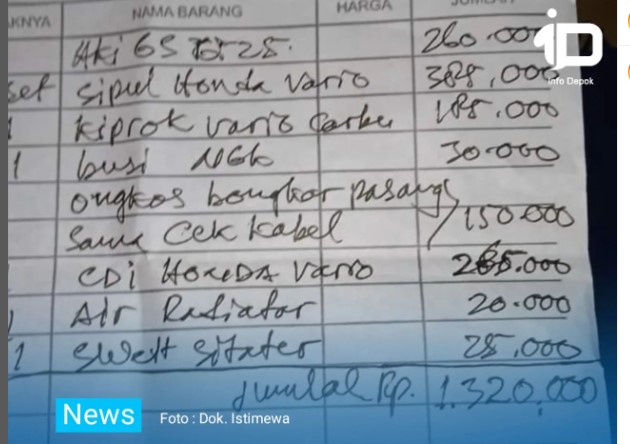 KNYA NAMA BARANG HARGA JUMLAH
Aki GS 25. 260.000
set Sipul Honda Vario 385,000
1 Kiprok Vario Carbu 185.000
1 busi NGK 30.000
ongkos bongkar pasang
Sama Cek Kabel 150.000
CDi HONDA Vario 265.000
Air Radiator 20.000
1 Sweit Sitater 25.000
Jumlah Rp. 1.320,000
iD
Info Depok
News Foto : Dok. Istimewa